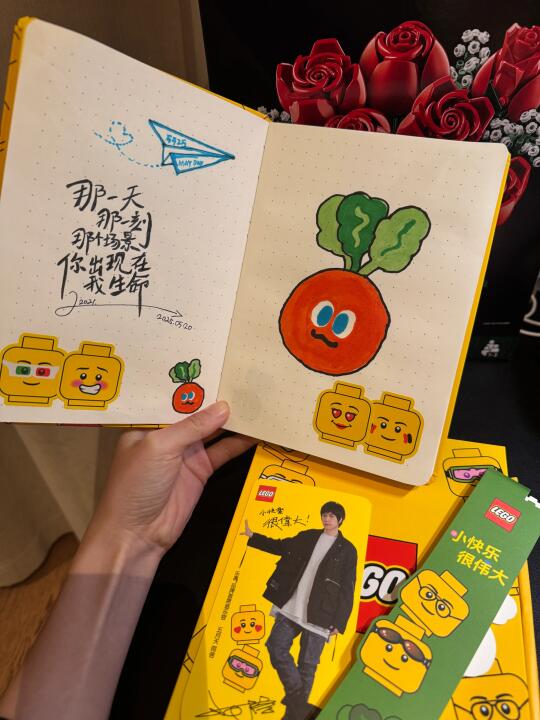 5525
MAYDAY
那一天
那一刻
那个场景
你出现在
我生命
2021
2025.05.20
LEGO
小快樂
很偉大!
五月天 阿信
LEGO
LEGO
小快乐
很伟大